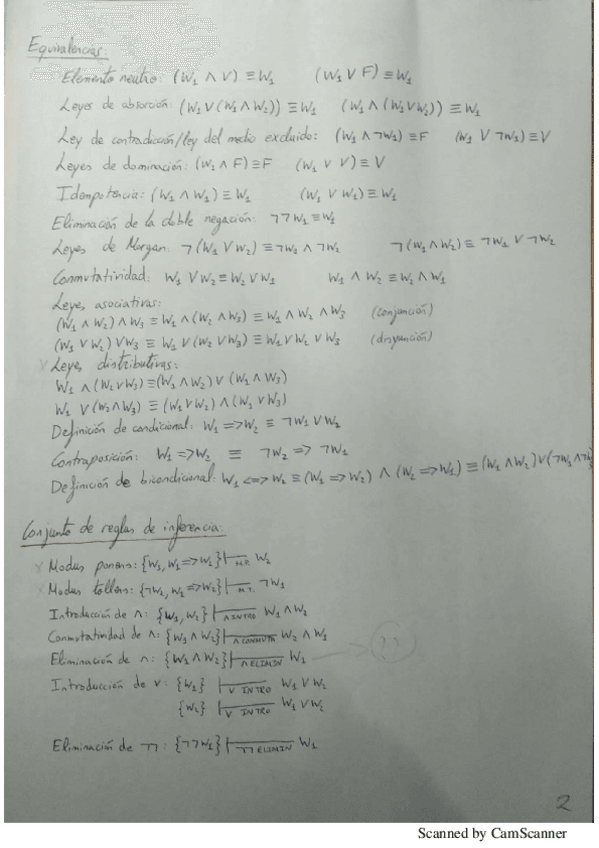 Equivalencias:
Elemento neutro: (W₁ ∧ V) ≡ W₁ (W₁ ∨ F) ≡ W₁
Leyes de absorción: (W₁ ∨ (W₁ ∧ W₂)) ≡ W₁ (W₁ ∧ (W₁ ∨ W₂)) ≡ W₁
Ley de contradicción/ley del medio excluido: (W₁ ∧ ¬W₁) ≡ F (W₁ ∨ ¬W₁) ≡ V
Leyes de dominación: (W₁ ∧ F) ≡ F (W₁ ∨ V) ≡ V
Idempotencia: (W₁ ∧ W₁) ≡ W₁ (W₁ ∨ W₁) ≡ W₁
Eliminación de la doble negación: ¬¬W₁ ≡ W₁
Leyes de Morgan: ¬(W₁ ∨ W₂) ≡ ¬W₂ ∧ ¬W₂ ¬(W₁ ∧ W₂) ≡ ¬W₁ ∨ ¬W₂
Conmutatividad: W₁ ∨ W₂ ≡ W₂ ∨ W₁ W₁ ∧ W₂ ≡ W₂ ∧ W₁
Leyes asociativas:
(W₁ ∧ W₂) ∧ W₃ ≡ W₁ ∧ (W₂ ∧ W₃) ≡ W₁ ∧ W₂ ∧ W₃ (conjunción)
(W₁ ∨ W₂) ∨ W₃ ≡ W₁ ∨ (W₂ ∨ W₃) ≡ W₁ ∨ W₂ ∨ W₃ (disyunción)
Leyes distributivas:
W₁ ∧ (W₂ ∨ W₃) ≡ (W₁ ∧ W₂) ∨ (W₁ ∧ W₃)
W₁ ∨ (W₂ ∧ W₃) ≡ (W₁ ∨ W₂) ∧ (W₁ ∨ W₃)
Definición de condicional: W₁ => W₂ ≡ ¬W₁ ∨ W₂
Contraposición: W₁ => W₂ ≡ ¬W₂ => ¬W₁
Definición de bicondicional: W₁ <=> W₂ ≡ (W₁ => W₂) ∧ (W₂ => W₁) ≡ (W₁ ∧ W₂) ∨ (¬W₁ ∧ ¬W
Conjunto de reglas de inferencia:
Modus ponens: {W₁, W₁ => W₂} ⊢ M.P. W₂
Modus tollens: {¬W₂, W₁ => W₂} ⊢ M.T. ¬W₁
Introducción de ∧: {W₁, W₂} ⊢ ∧ INTRO W₁ ∧ W₂
Conmutatividad de ∧: {W₁ ∧ W₂} ⊢ ∧ CONMUTA W₂ ∧ W₁
Eliminación de ∧: {W₁ ∧ W₂} ⊢ ∧ ELIMIN W₁ ??
Introducción de ∨: {W₁} ⊢ ∨ INTRO W₁ ∨ W₂
{W₂} ⊢ ∨ INTRO W₁ ∨ W₂
Eliminación de ¬¬: {¬¬W₁} ⊢ ¬¬ ELIMIN W₁
2
Scanned by CamScanner